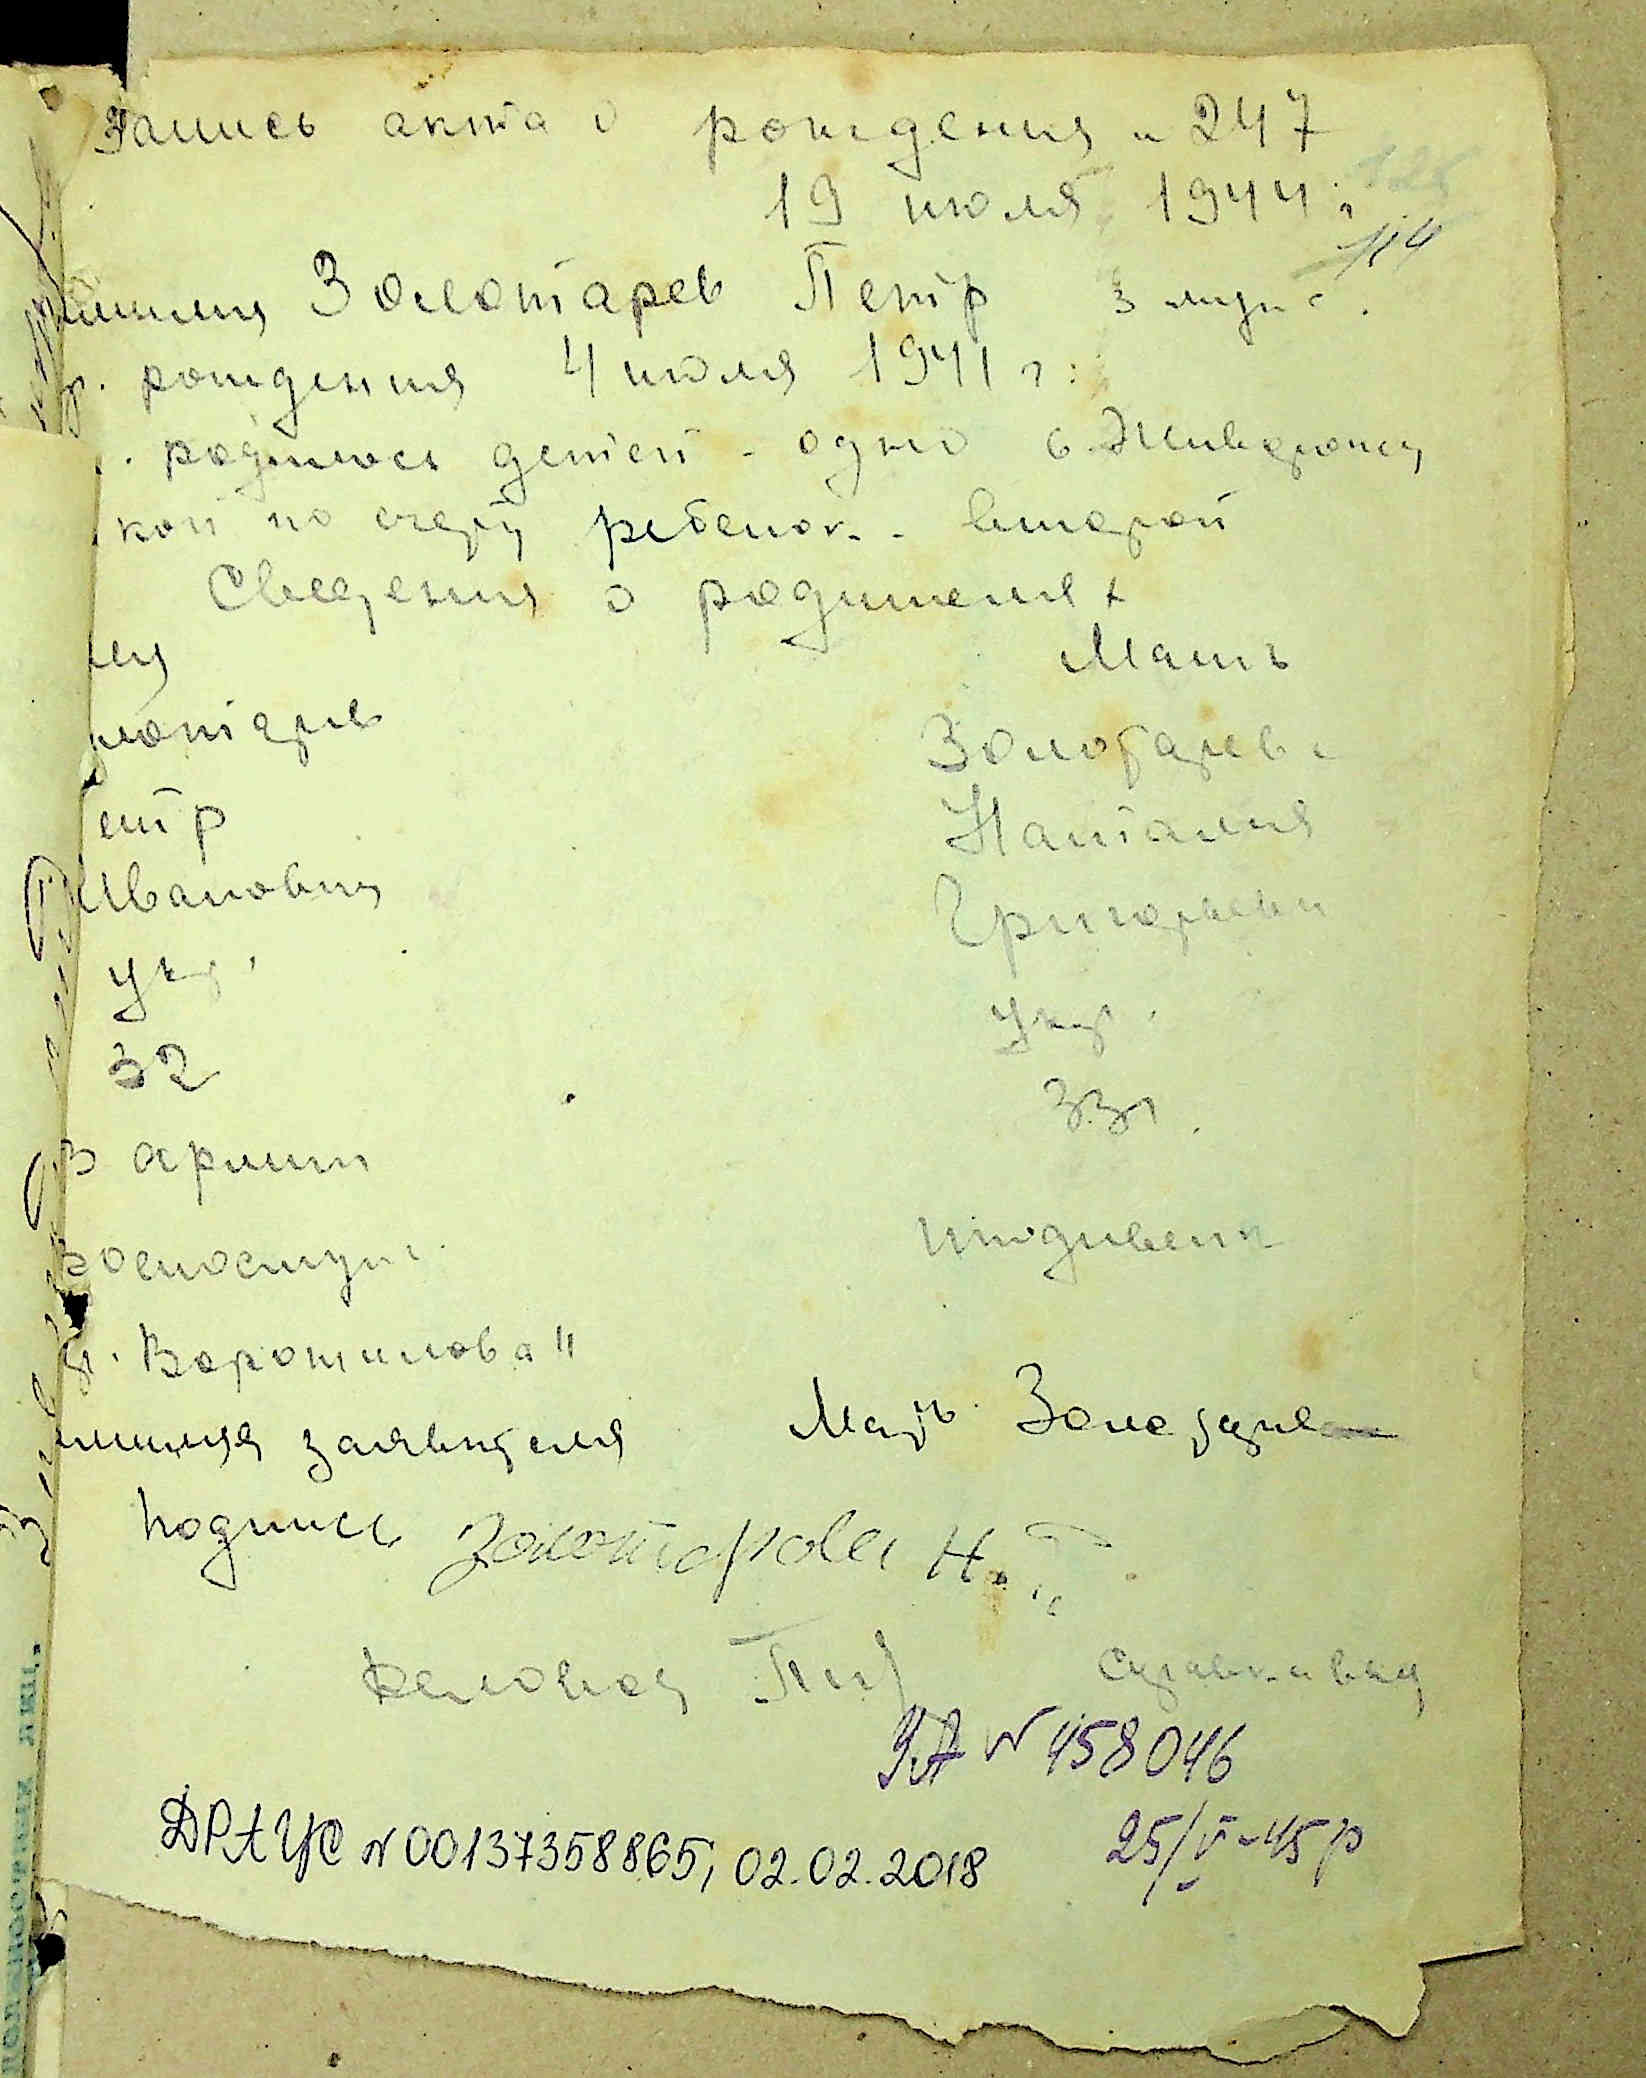 Запись акта о рождения н 247
19 июля 1944 г
114
Золотарев Петр 3 муж.
рождения 4 июля 1941 г.
родилось детей - одно
кой по счету ребенок - второй
Сведения о родителях
Мать
Золотарева
етр Наталия
Иванович Григорьевн
укр. укр.
32 33 г.
в армии
военослуж.
Ворошилова"
заявителя Мать Золотарева
Подпись Золотарова Н. Г.
УА № 458046
ДРАЦС № 00137358865, 02.02.2018
25/V-45 р